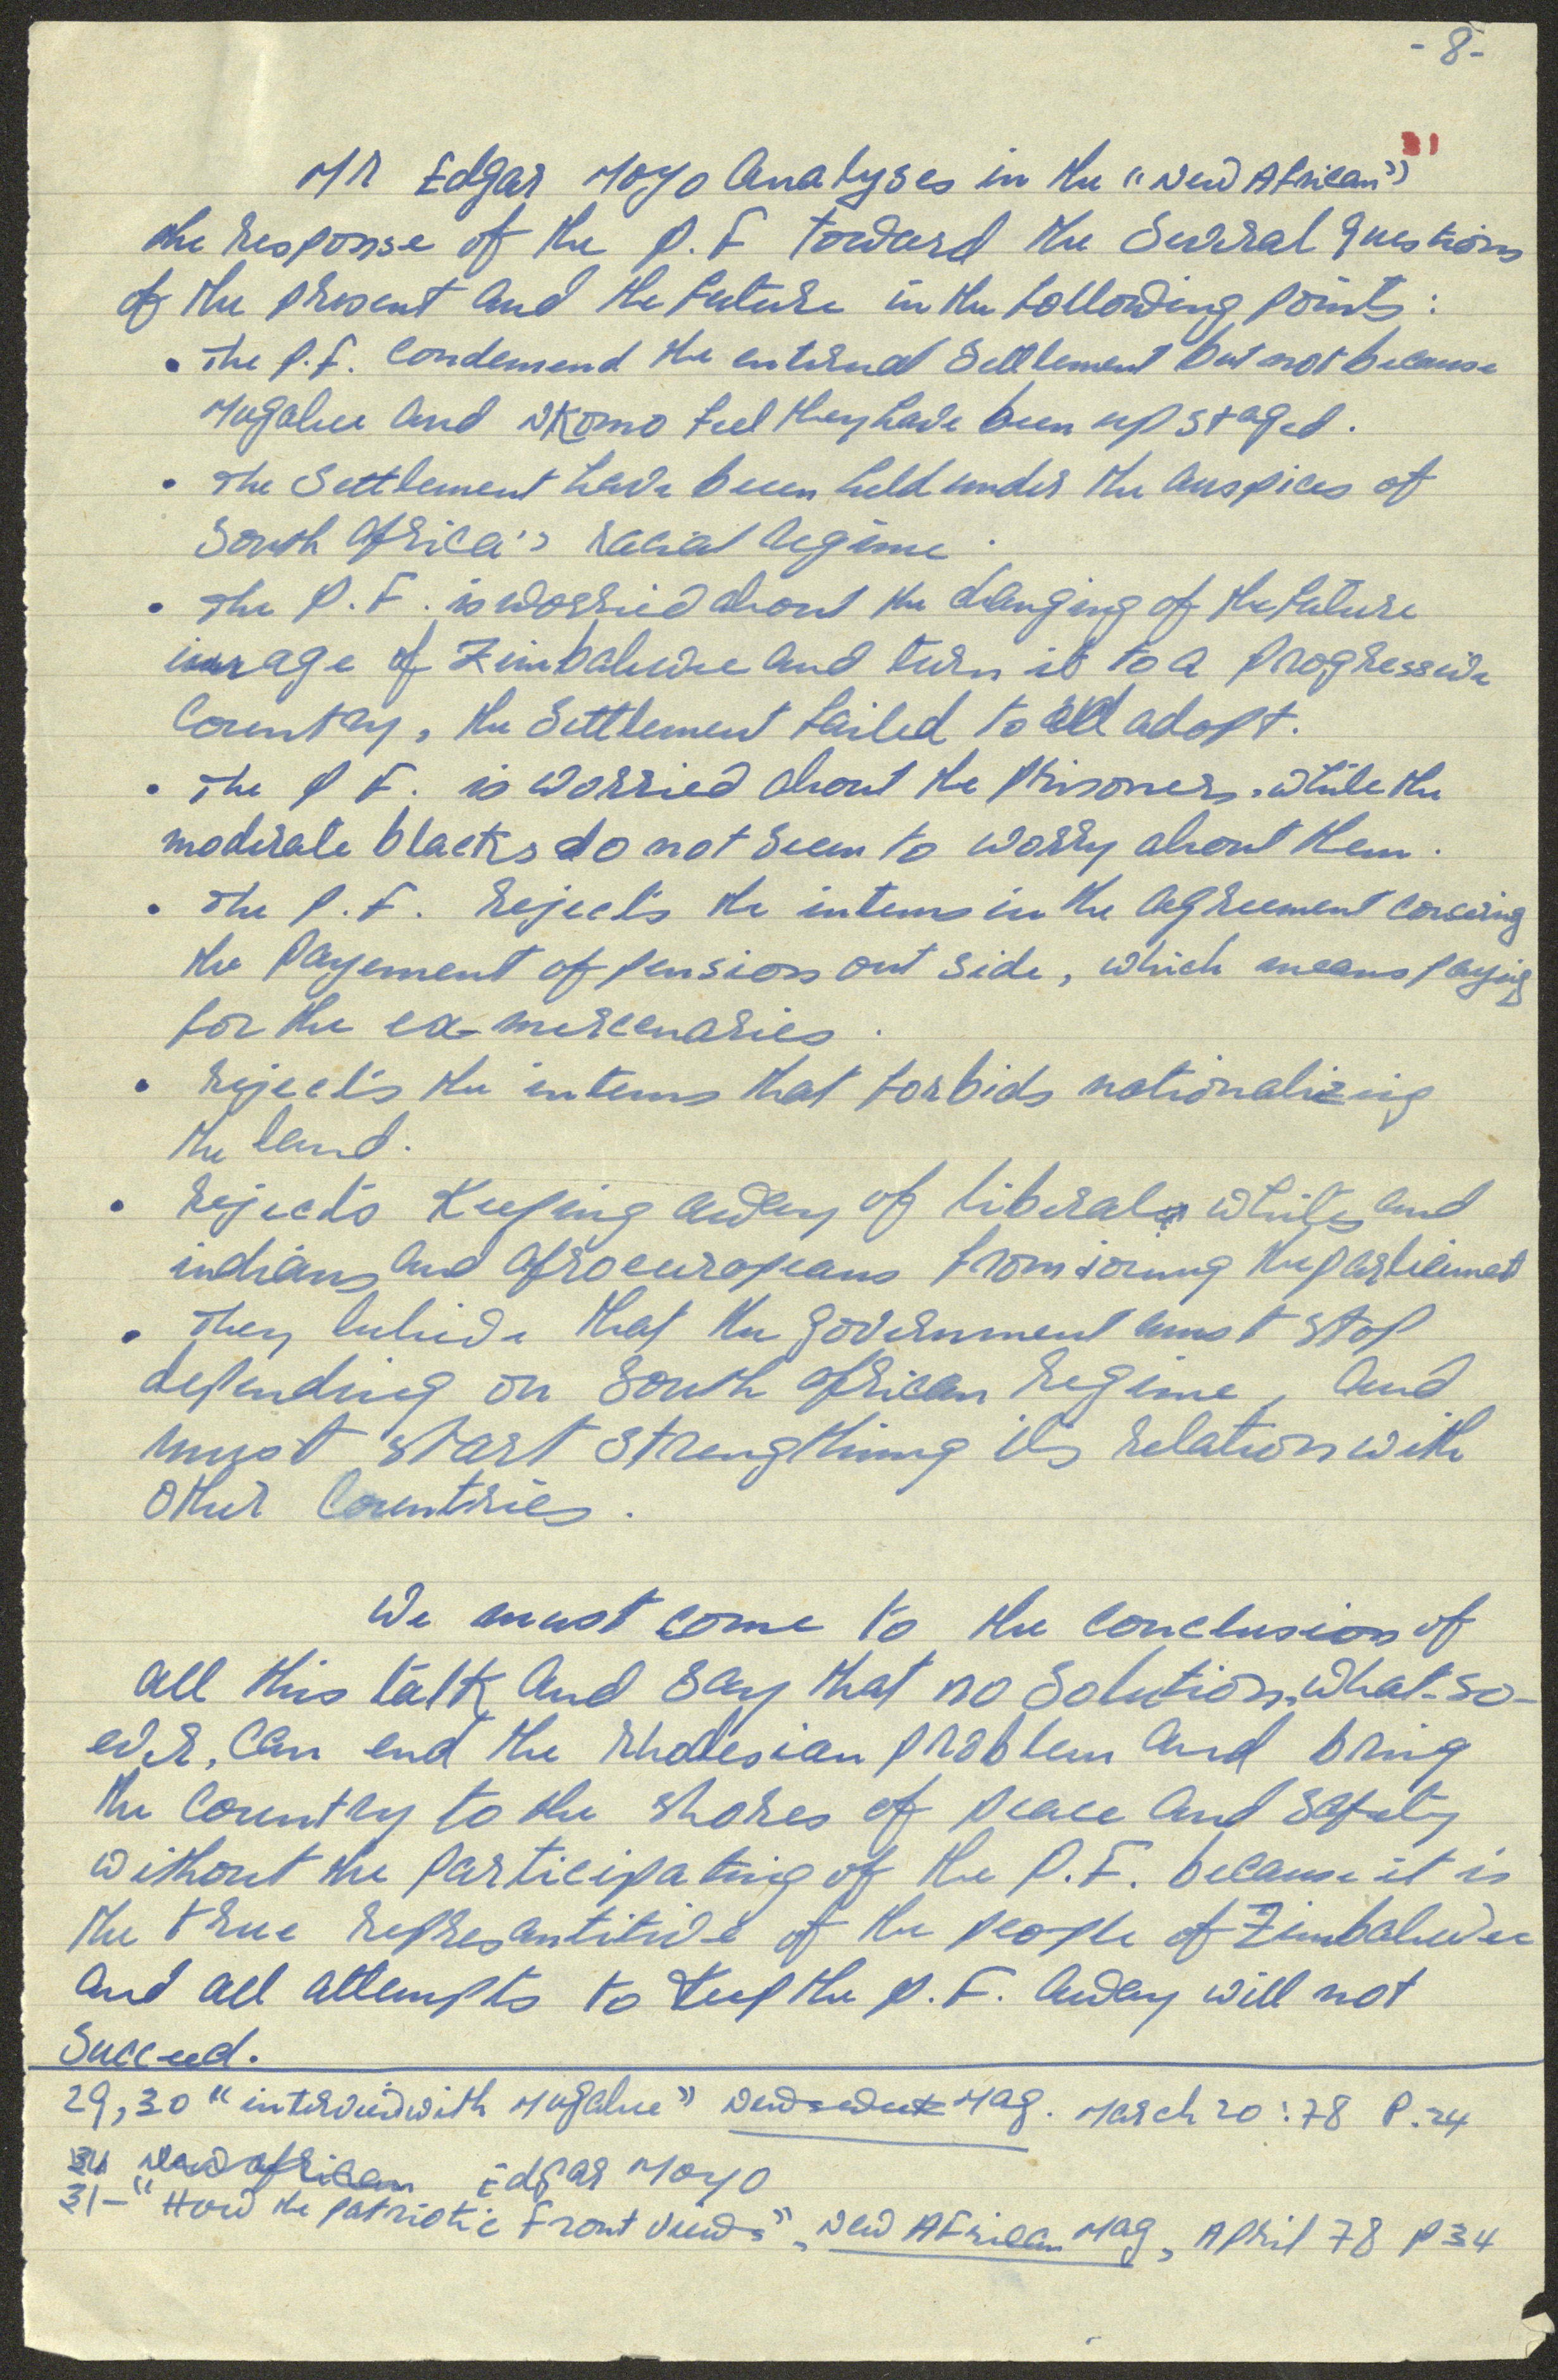 - 8 -
31
Mr Edgar Moyo Analyses in the "New African"
the response of the P.F toward the Several questions
of the present and the future in the following points:
• The P.F. Condemend the enternal Settlement but not because
Mugabee and Nkomo feel they have been up staged.
• The Settlement have been held under the auspices of
South Africa's racial regime.
• The P.F. is worried about the changing of the future
image of Zimbabwee and turn it to a progressive
Country, the Settlement failed to adopt.
• The P F. is worried about the prisoners. while the
moderate blacks do not seem to worry about them.
• The P.F. rejects the intems in the agreement covering
the Payement of pension out side, which means paying
for the ex-mercenaries.
• rejects the intems that forbids nationalizing
the land.
• rejects Keeping away of liberal whites and
indians and afroeuropeans from joinung the parliemet
• They believe that the government must stop
depending on South african regime, and
must start strengthinng its relation with
other Countries.
We must come to the conclusion of
all this talk and say that no Solution, what-so-
ever, can end the rhodesian problem and bring
the country to the shores of peace and safety
without the participating of the P.F. because it is
the true represantitive of the people of Zimbabwee
and all attempts to keep the P.F. away will not
Succeed.
29,30 "interview with Mugabee" Newsweek Mag. March 20:78 P.24
31 New african Edgar Moyo
31- "How the patriotic Front views", New African Mag, April 78 P 34